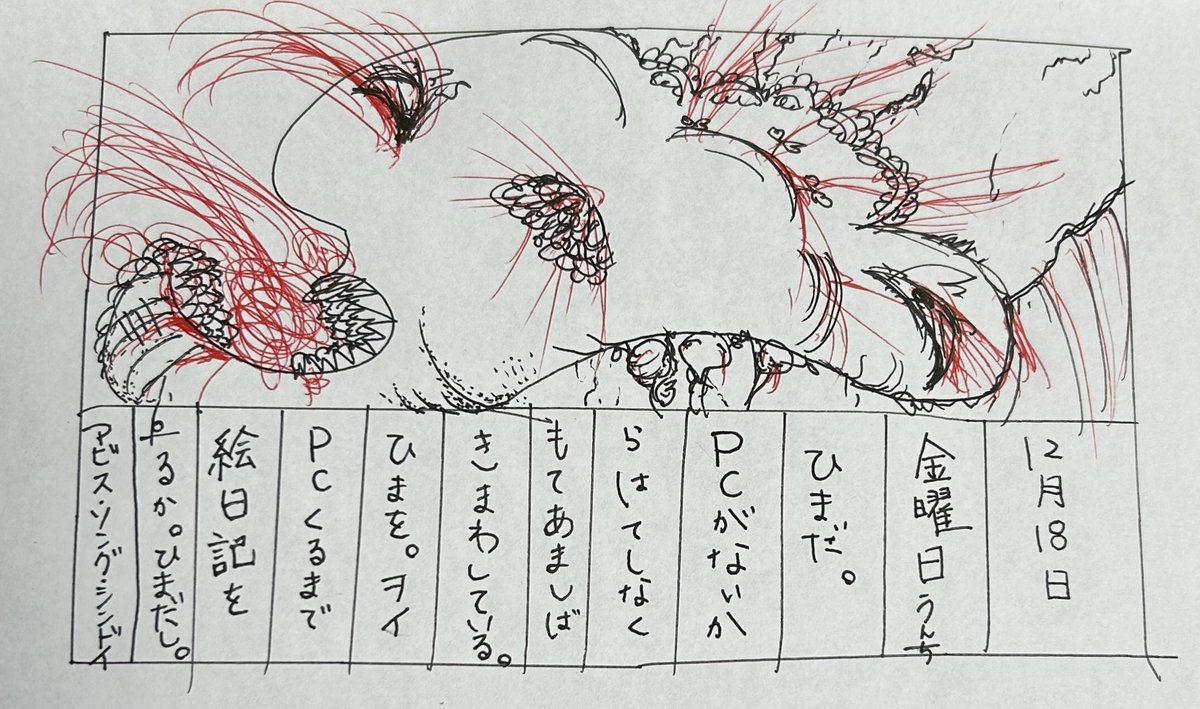 12月18日
金曜日うんち
ひまだ。
PCがないか
らはてしなく
もてあましば
きまわしている。
ひまを。ヲイ
PCくるまで
絵日記を
るか。ひまだし。
アビス・ソング・シンドイ